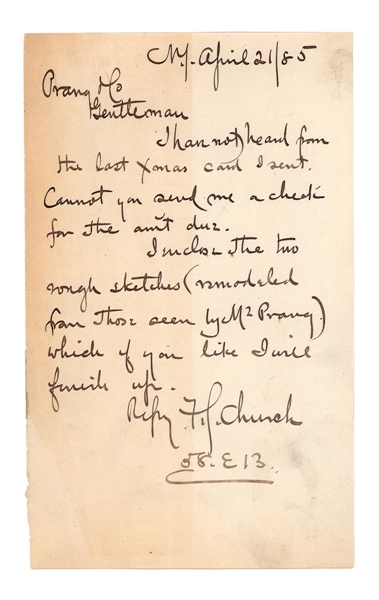 N.Y. April 21/85
Prang & Co
Gentleman
I have not heard from
the last Xmas card I sent.
Cannot you send me a check
for the am't due.
I inclose the two
rough sketches (remodeled
from those seen by Mr Prang)
which if you like I will
finish up.
Resfy F.S. Church
58. E 13.